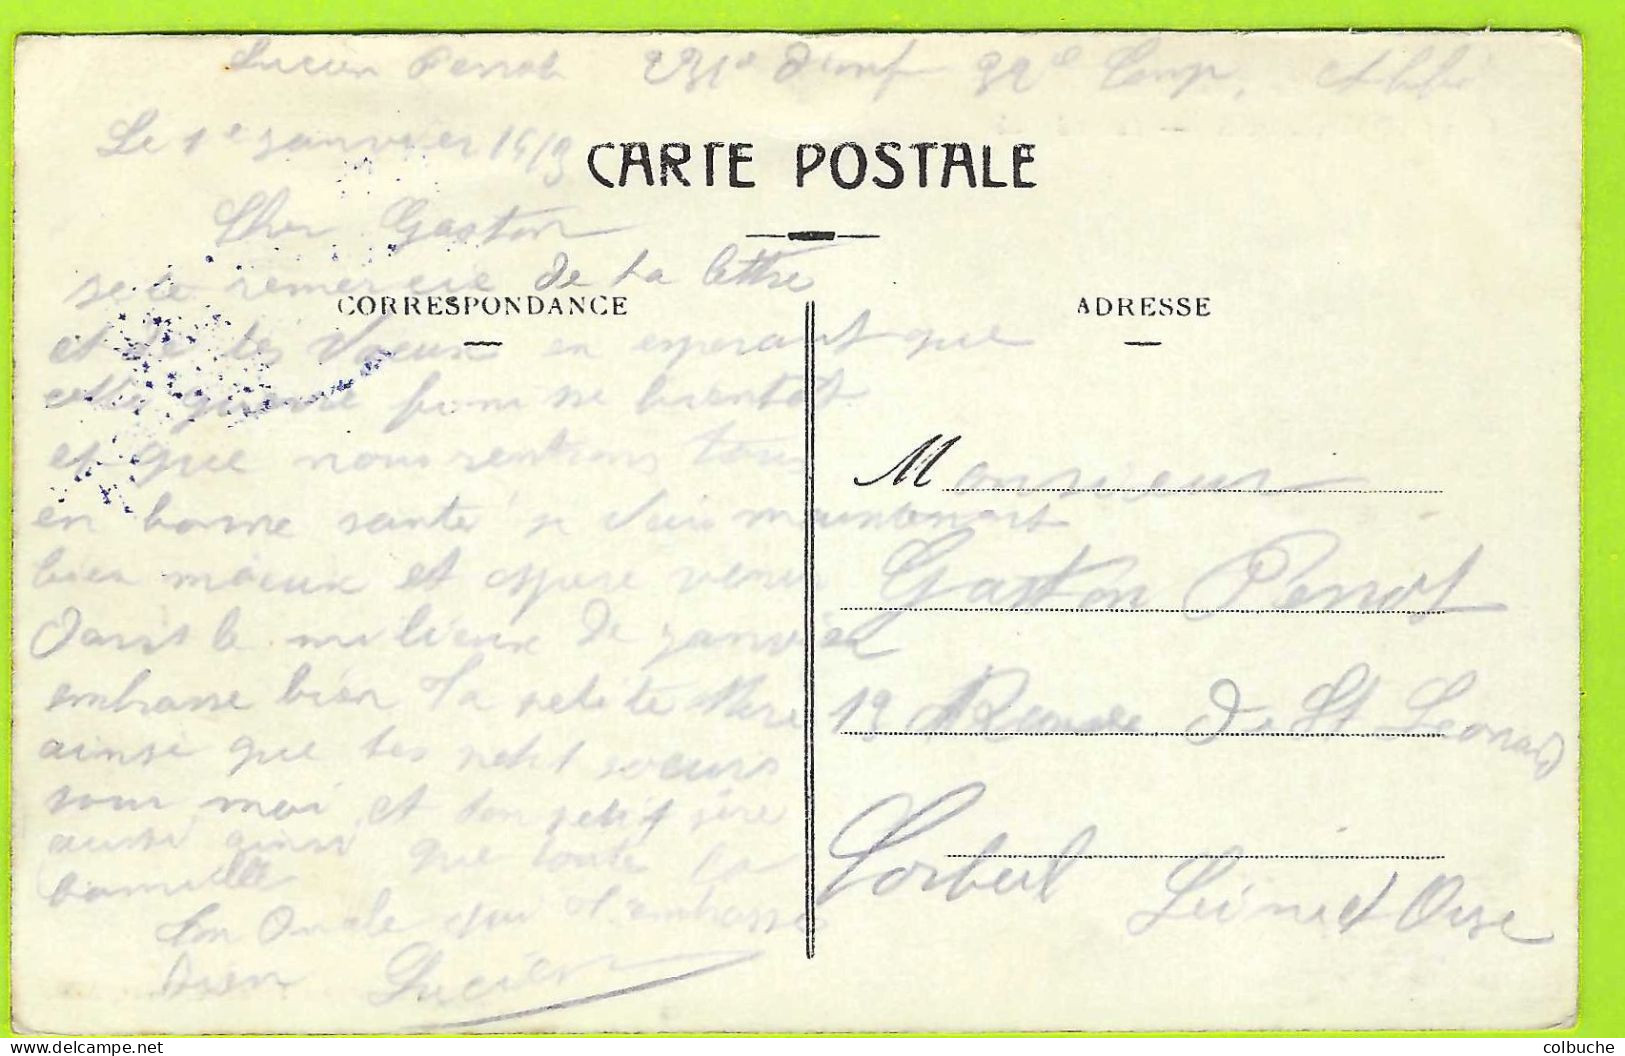 Lucien Perrot 231e d'inf 32e Comp.
Le 1e janvier 1915
CARTE POSTALE
Cher Gaston
je te remercie de ta lettre
CORRESPONDANCE
ADRESSE
et de tes Voeux en esperant que
cette guerre finisse bientot
et que nous rentrions tous
en bonne santé je vais maintenant
bien mieux et espere venir
dans le milieux de janvier
embrasse bien ta petite Mere
ainsi que tes petit soeurs
pour moi et ton petit
aussi ainsi que toute la
famille
Ton Oncle qui t'embrasse
bien Lucien
Monsieur
Gaston Perrot
19 Route de St Leonard
Corbeil Seine et Oise
colbuche